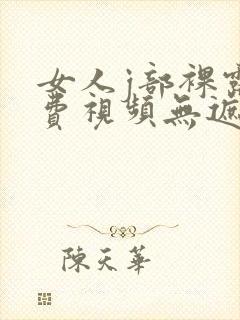 女人j部裸露
費視頻無遮
陳天華